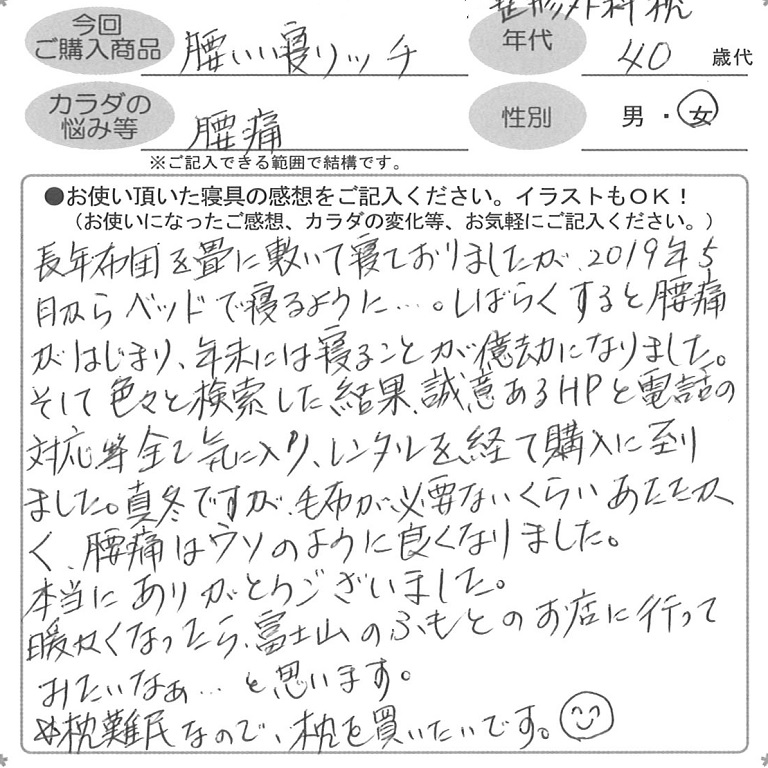 整形外科枕
今回
ご購入商品
腰いい寝リッチ
年代
40 歳代
カラダの
悩み等
腰痛
性別
男・女
※ご記入できる範囲で結構です。
●お使い頂いた寝具の感想をご記入ください。イラストもOK!
(お使いになったご感想、カラダの変化等、お気軽にご記入ください。)
長年布団を畳に敷いて寝ておりましたが、2019年5
月からベッドで寝るように…。しばらくすると腰痛
がはじまり、年末には寝ることが億劫になりました。
そして色々と検索した結果、誠意あるHPと電話の
対応等全て気に入り、レンタルを経て購入に至り
ました。真冬ですが、毛布が必要ないくらいあたたか
く、腰痛はウソのように良くなりました。
本当にありがとうございました。
暖かくなったら、富士山のふもとのお店に行って
みたいなぁ…と思います。
※枕難民なので、枕を買いたいです。